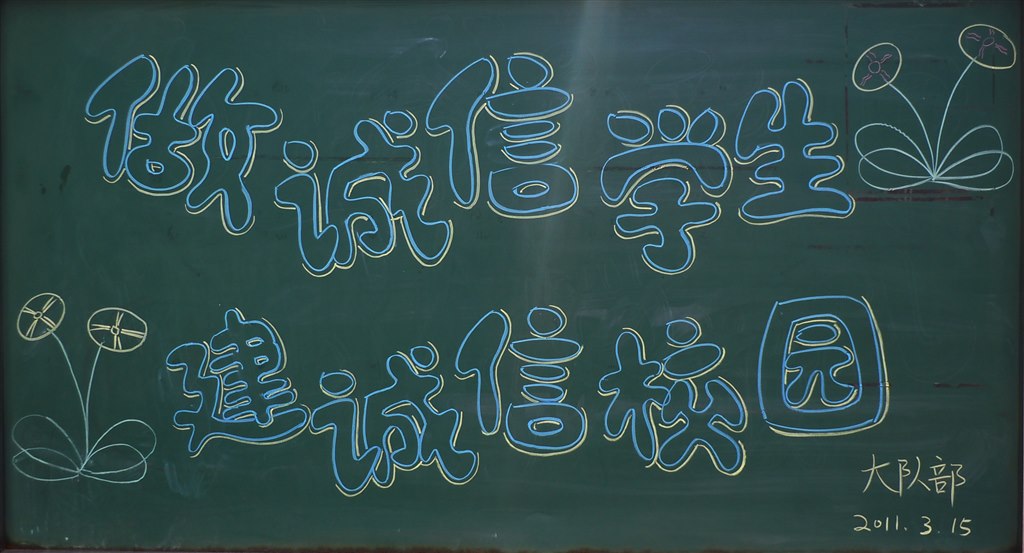 做诚信学生
建诚信校园
大队部
2011.3.15